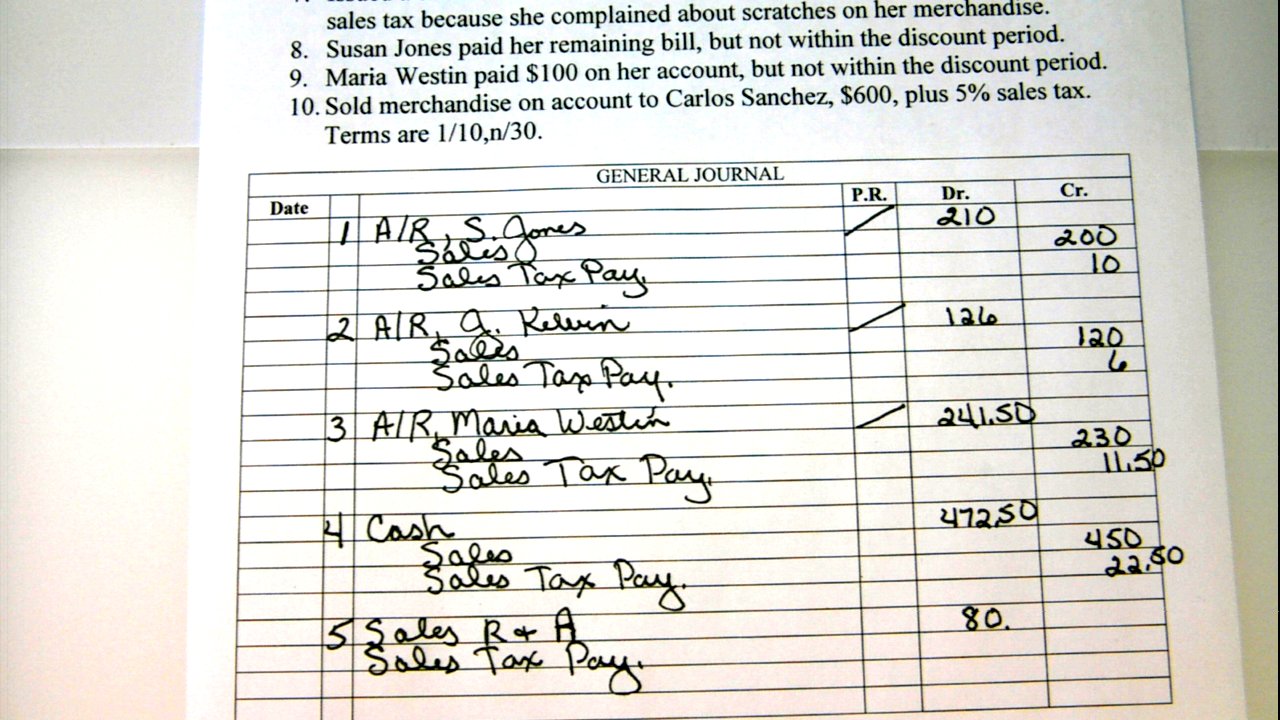 sales tax because she complained about scratches on her merchandise.
8. Susan Jones paid her remaining bill, but not within the discount period.
9. Maria Westin paid $100 on her account, but not within the discount period.
10. Sold merchandise on account to Carlos Sanchez, $600, plus 5% sales tax.
Terms are 1/10,n/30.
GENERAL JOURNAL
Date P.R. Dr. Cr.
1 A/R, S. Jones 210
Sales 200
Sales Tax Pay. 10
2 A/R, A. Kelvin 126
Sales 120
Sales Tax Pay. 6
3 A/R, Maria Westin 241.50
Sales 230
Sales Tax Pay. 11.50
4 Cash 472.50
Sales 450
Sales Tax Pay. 22.50
5 Sales R + A 80.
Sales Tax Pay.